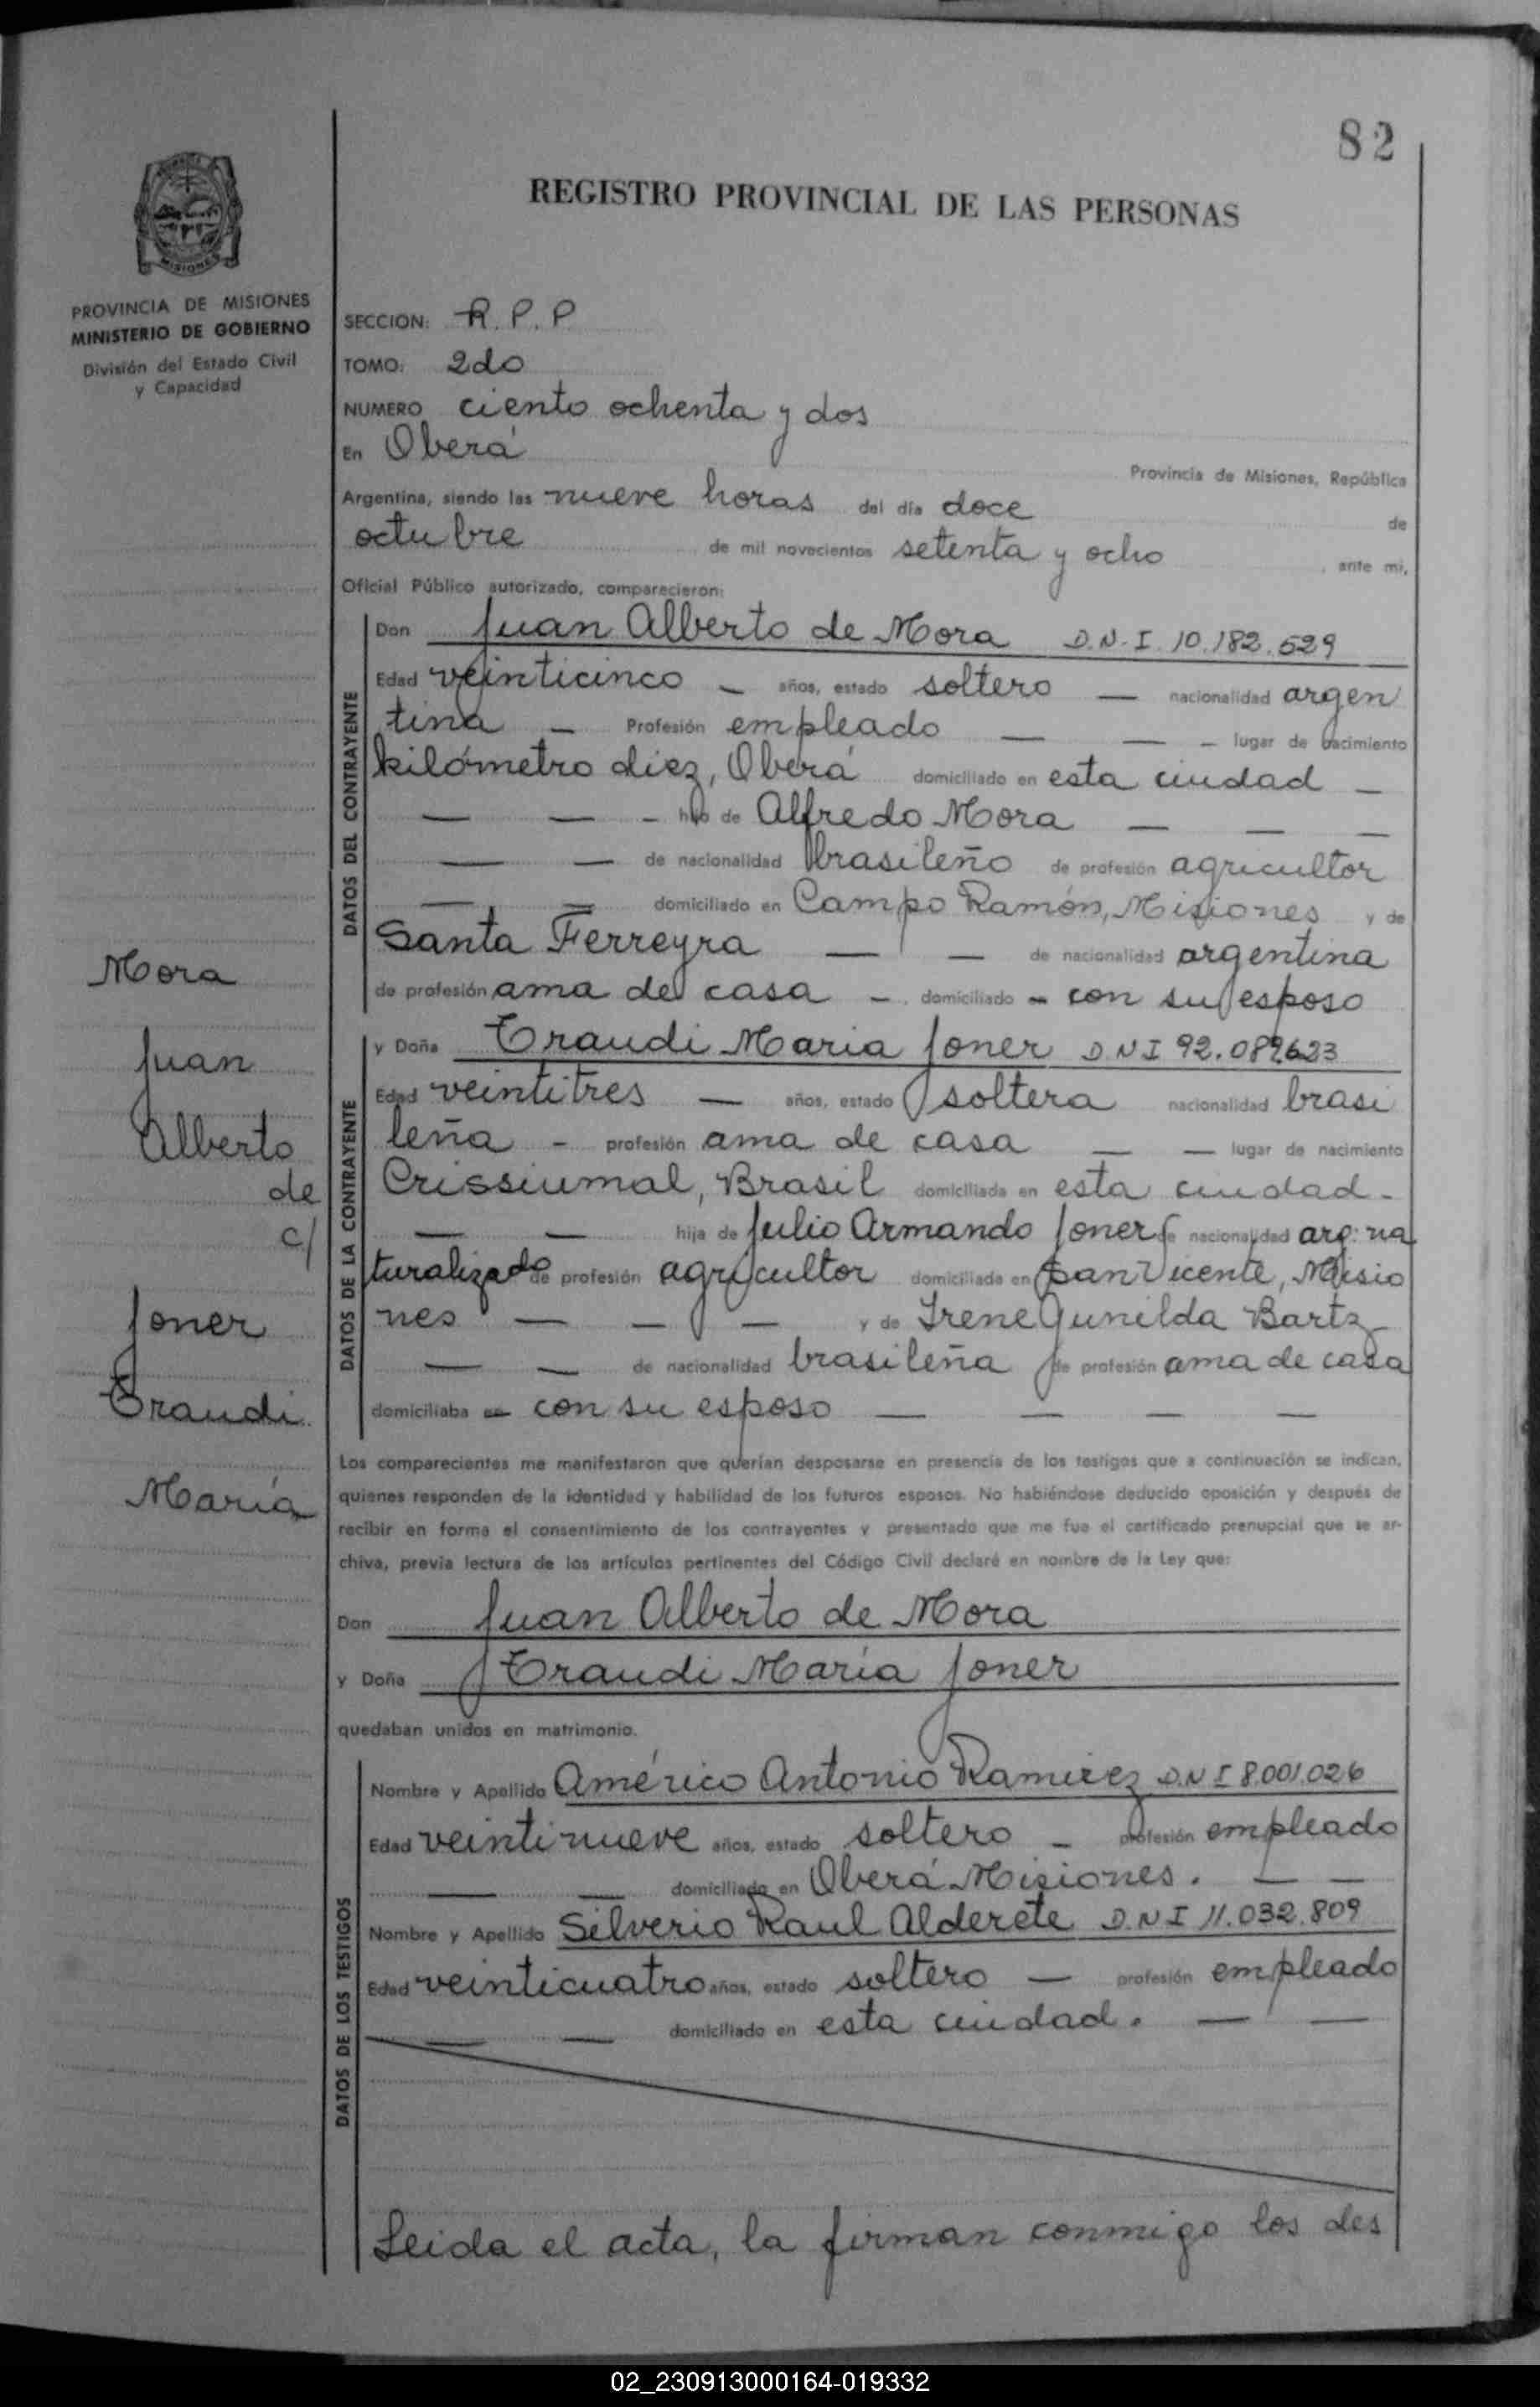 82
REGISTRO PROVINCIAL DE LAS PERSONAS
MISIONES
PROVINCIA DE MISIONES
MINISTERIO DE GOBIERNO
División del Estado Civil
y Capacidad
SECCION: R. P. P
TOMO: 2do
NUMERO ciento ochenta y dos
En Oberá
Provincia de Misiones, República
Argentina, siendo las nueve horas del día doce de
octubre de mil novecientos setenta y ocho, ante mi,
Oficial Público autorizado, comparecieron:
DATOS DEL CONTRAYENTE
Don Juan Alberto de Mora D.N.I. 10.182.529
Edad veinticinco — años, estado soltero — nacionalidad argen
tina — Profesión empleado — — — lugar de nacimiento
kilómetro diez, Oberá domiciliado en esta ciudad —
— — — hijo de Alfredo Mora — — —
— — de nacionalidad brasileño de profesión agricultor
— — domiciliado en Campo Ramón, Misiones y de
Santa Ferreyra — — de nacionalidad argentina
de profesión ama de casa — domiciliado — con su esposo
Mora
Juan
Alberto
de
c/
Joner
Traudi
María
DATOS DE LA CONTRAYENTE
y Doña Traudi Maria Joner D N I 92.089623
Edad veintitres — años, estado soltera nacionalidad brasi
leña — profesión ama de casa — — lugar de nacimiento
Crissiumal, Brasil domiciliada en esta ciudad.
— — hija de Julio Armando Joner de nacionalidad arg. na
turalizado de profesión agricultor domiciliado en San Vicente, Misio
nes — — — y de Irene Gunilda Bartz
— — de nacionalidad brasileña de profesión ama de casa
domiciliaba en con su esposo — — — —
Los comparecientes me manifestaron que querían desposarse en presencia de los testigos que a continuación se indican,
quienes responden de la identidad y habilidad de los futuros esposos. No habiéndose deducido oposición y después de
recibir en forma el consentimiento de los contrayentes y presentado que me fue el certificado prenupcial que se ar-
chiva, previa lectura de los artículos pertinentes del Código Civil declaré en nombre de la Ley que:
Don Juan Alberto de Mora
y Doña Traudi María Joner
quedaban unidos en matrimonio.
DATOS DE LOS TESTIGOS
Nombre y Apellido Américo Antonio Ramirez D.N I 8.001.026
Edad veintinueve años, estado soltero — profesión empleado
— — domiciliado en Oberá Misiones. — —
Nombre y Apellido Silverio Raul Alderete D.N I 11.032.809
Edad veinticuatro años, estado soltero — profesión empleado
— — domiciliado en esta ciudad. — —
Leida el acta, la firman conmigo los des
02_230913000164-019332